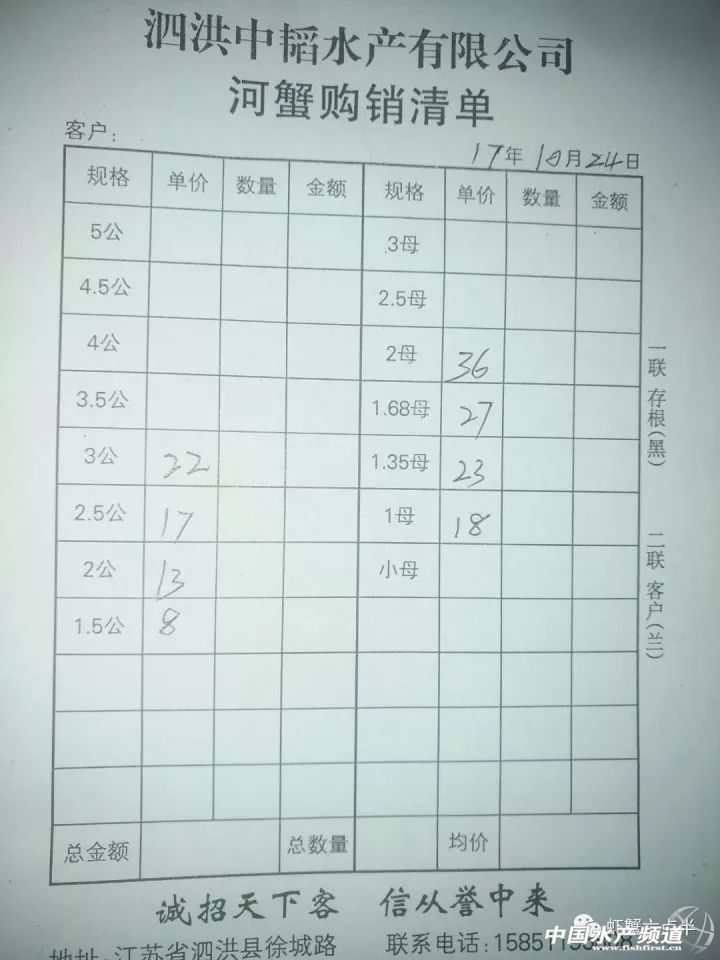 泗洪中韬水产有限公司
河蟹购销清单
客户：
17年10月24日
规格 单价 数量 金额 规格 单价 数量 金额
5公 3母
4.5公 2.5母
4公 2母 36
3.5公 1.68母 27
3公 22 1.35母 23
2.5公 17 1母 18
2公 13 小母
1.5公 8
总金额 总数量 均价
一联 存根(黑)
二联 客户(兰)
诚招天下客 信从誉中来
地址：江苏省泗洪县徐城路 联系电话：158511
虾蟹六点半
中国水产频道
www.fishfirst.cn